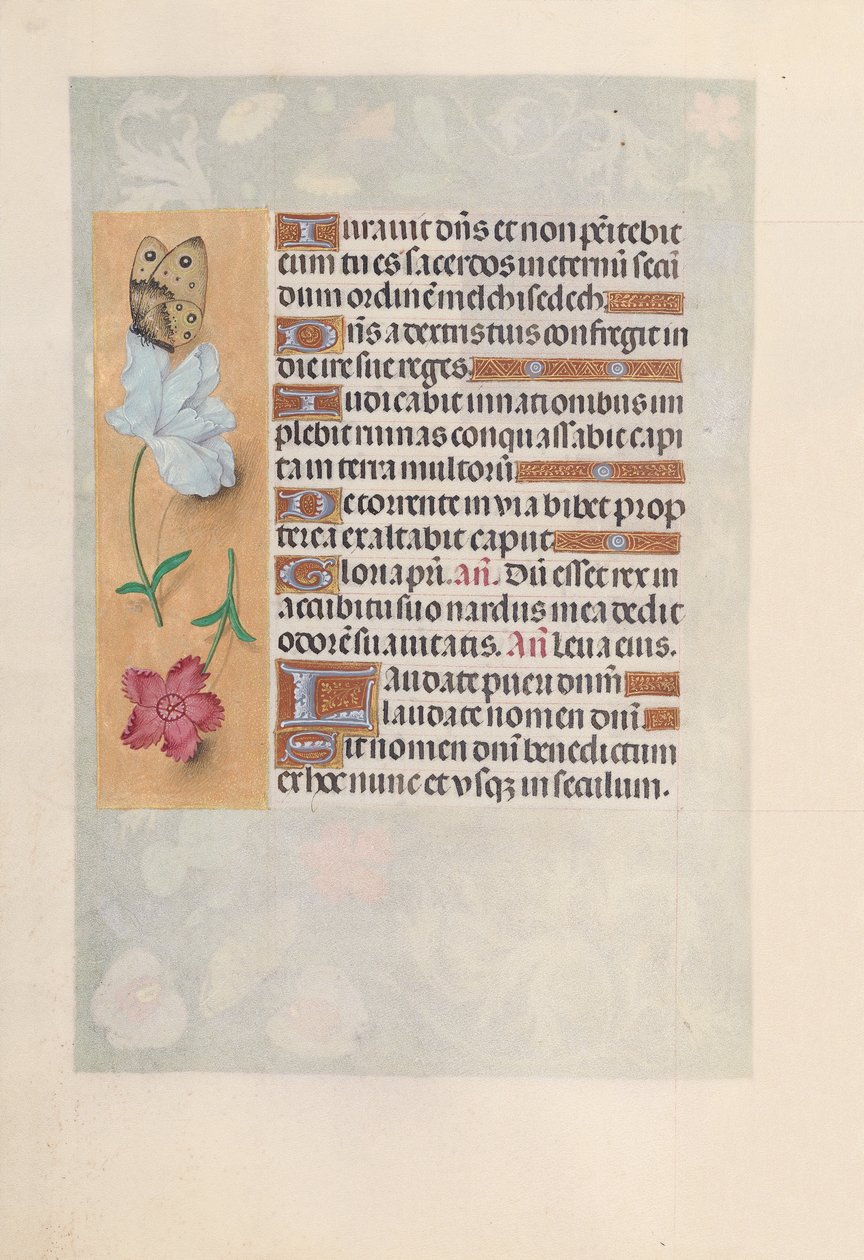 Iurauit dn̄s et non pēitebit
eum tu es sacerdos in eternū secū
dum ordinē melchisedech.
Dn̄s a dextris tuis confregit in
die ire sue reges.
Iudicabit in nationibus im
plebit ruinas conquassabit capi
ta in terra multorū
De torrente in via bibet prop
terea exaltabit caput.
Gloria pr̄i. an̄. Dū esset rex in
accubitu suo nardus mea dedit
odorē suauitatis. An̄ Leua eius.
Laudate pueri dnm̄
laudate nomen dn̄i.
Sit nomen dn̄i benedictum
ex hoc nunc et vsqꝫ in seculum.